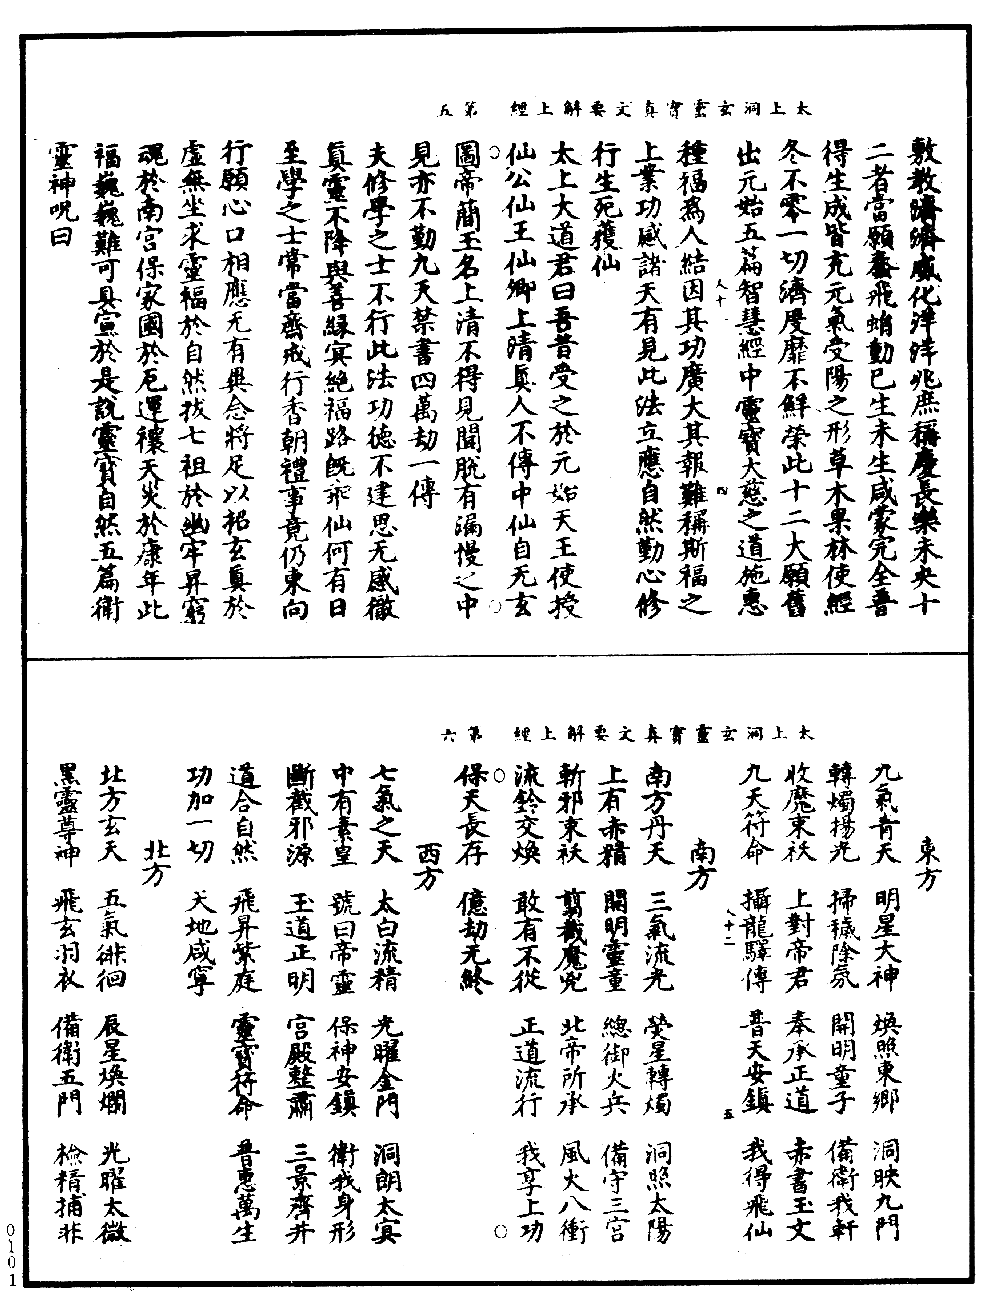 太上洞玄靈寶真文要解上經　第五
敷教躋躋威化洋洋兆庶稱慶長樂未央十
二者當願蠢飛蛸動已生未生咸蒙完全普
得生成皆充元氣受陽之形草木果林使經
冬不零一切濟度靡不鮮榮此十二大願舊
出元始五篇智慧經中靈寶大慈之道施惠
種福為人結因其功廣大其報難稱斯福之
上業功感諸天有見此法立應自然勤心修
行生死獲仙
太上大道君曰吾昔受之於元始天王使授
仙公仙王仙卿上清真人不傳中仙自无玄
圖帝簡玉名上清不得見聞脫有漏慢之中
見亦不勤九天禁書四萬劫一傳
夫修學之士不行此法功德不建思无感徹
真靈不降與善緣冥絕福路既乖仙何有日
至學之士常當齋戒行香朝禮事竟仍東向
行願心口相應无有異念將足以招玄真於
虛無坐求靈福於自然拔七祖於幽牢昇窮
魂於南宮保家國於厄運禳天災於康年此
福巍巍難可具宣於是說靈寶自然五篇衛
靈神呪曰
太上洞玄靈寶真文要解上經　第六
東方
九氣青天　明星大神　煥照東鄉　洞映九門
轉燭揚光　掃穢除氛　開明童子　備衛我軒
收魔束祅　上對帝君　奉承正道　赤書玉文
九天符命　攝龍驛傳　普天安鎮　我得飛仙
南方
南方丹天　三氣流光　熒星轉燭　洞照太陽
上有赤精　開明靈童　總御火兵　備守三宮
斬邪束祅　翦截魔兇　北帝所承　風火八衝
流鈴交煥　敢有不從　正道流行　我享上功
保天長存　億劫无終
西方
七氣之天　太白流精　光曜金門　洞朗太冥
中有素皇　號曰帝靈　保神安鎮　衛我身形
斷截邪源　玉道正明　宮殿整肅　三景齊并
道合自然　飛昇紫庭　靈寶符命　普惠萬生
功加一切　天地咸寧
北方
北方玄天　五氣徘徊　辰星煥爛　光曜太微
黑靈尊神　飛玄羽衣　備衛五門　檢精捕非
0101